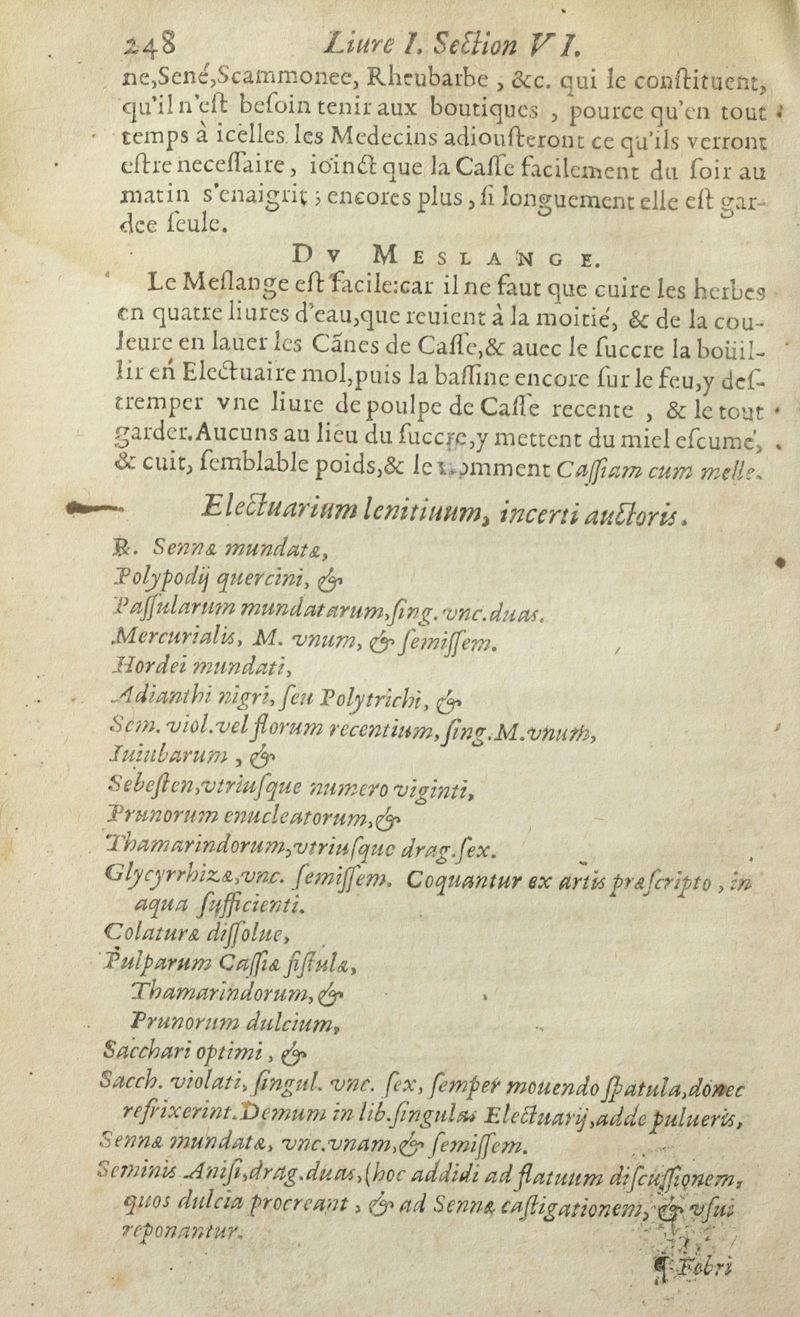 248 Liure I. Section VI.
ne,Sené,Scammonee, Rheubarbe , &c. qui le conſtituent,
qu'il n'eſt beſoin tenir aux boutiques , pource qu'en tout
temps à icelles les Medecins adiouſteront ce qu'ils verront
eſtre neceſſaire, ioinct que la Caſſe facilement du ſoir au
matin s'enaigrit ; encores plus , ſi longuement elle eſt gar-
dee ſeule.
DV MESLANGE.
Le Meſlange eſt facile:car il ne faut que cuire les herbes
en quatre liures d'eau,que reuient à la moitié, & de la cou-
leure en lauer les Cãnes de Caſſe,& auec le ſuccre la boüil-
lir en Electuaire mol,puis la baſſine encore ſur le feu,y deſ-
tremper vne liure de poulpe de Caſſe recente , & le tout
garder.Aucuns au lieu du ſuccre,y mettent du miel eſcumé,
& cuit, ſemblable poids,& le nomment Caſſiam cum melle.
Electuarium lenitiuum, incerti auctoris.
℞. Sennæ mundatæ,
Polypodij quercini, &
Paſſularum mundatarum,ſing. vnc.duas.
Mercurialis, M. vnum, & ſemiſſem.
Hordei mundati,
Adianthi nigri, ſeu Polytrichi, &
Sem. viol.vel florum recentium,ſing.M.vnum,
Iuiubarum , &
Sebeſten,vtriuſque numero viginti,
Prunorum enucleatorum,&
Thamarindorum,vtriuſque drag.ſex.
Glycyrrhizæ,vnc. ſemiſſem. Coquantur ex artis præſcripto , in
aqua ſufficienti.
Colaturæ diſſolue,
Pulparum Caſſiæ fiſtulæ,
Thamarindorum, &
Prunorum dulcium,
Sacchari optimi , &
Sacch. violati, ſingul. vnc. ſex, ſemper mouendo ſpatula,donec
refrixerint.Demum in lib.ſingulas Electuarij,adde pulueris,
Sennæ mundatæ, vnc.vnam,& ſemiſſem.
Seminis Aniſi,drag.duas,(hoc addidi ad flatuum diſcuſſionem,
quos dulcia procreant , & ad Sennæ caſtigationem, & vſui
reponantur.
¶ Febri